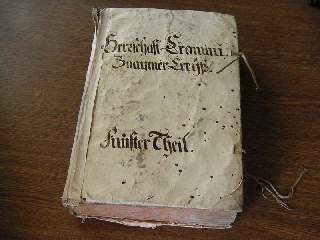 Herrschafft-Crommau.
Znaimmer-Creÿß.
Fünffter Theil.